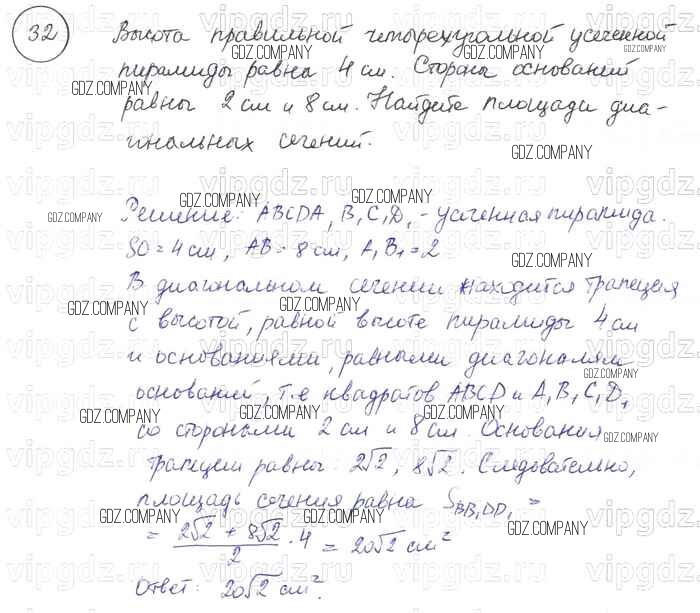 32 Высота правильной четырехугольной усеченной
пирамиды равна 4 см. Стороны оснований
равны 2 см и 8 см. Найдите площади диа-
гональных сечений.
Решение: ABCDA₁B₁C₁D₁ - усеченная пирамида.
SO = 4 см, AB = 8 см, A₁B₁ = 2
В диагональном сечении находится трапеция
с высотой, равной высоте пирамиды 4 см
и основаниями, равными диагоналям
оснований, т.е квадратов ABCD и A₁B₁C₁D₁
со сторонами 2 см и 8 см. Основания
трапеции равны: 2√2, 8√2. Следовательно,
площадь сечения равна S_BB₁DD₁ =
= (2√2 + 8√2)/2 · 4 = 20√2 см²
Ответ: 20√2 см².
GDZ.COMPANY
vipgdz.ru